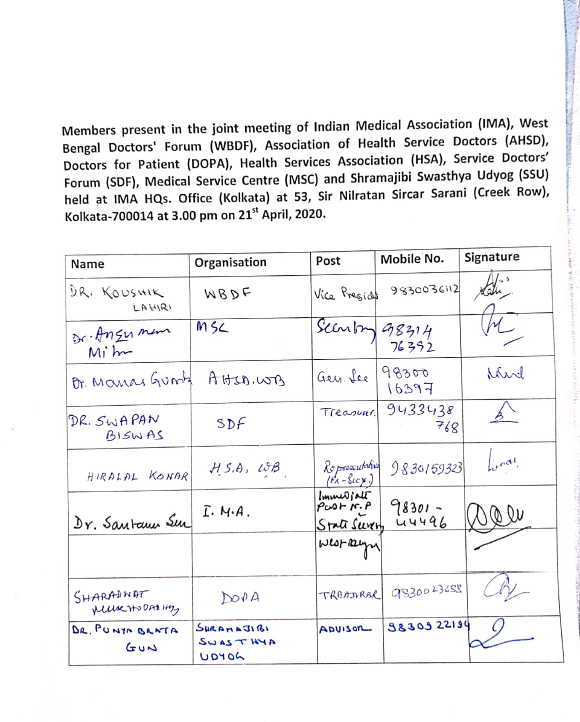 Members present in the joint meeting of Indian Medical Association (IMA), West
Bengal Doctors' Forum (WBDF), Association of Health Service Doctors (AHSD),
Doctors for Patient (DOPA), Health Services Association (HSA), Service Doctors'
Forum (SDF), Medical Service Centre (MSC) and Shramajibi Swasthya Udyog (SSU)
held at IMA HQs. Office (Kolkata) at 53, Sir Nilratan Sircar Sarani (Creek Row),
Kolkata-700014 at 3.00 pm on 21st April, 2020.
Name Organisation Post Mobile No. Signature
DR. KOUSHIK WBDF Vice Presid 9830036112
LAHIRI
Dr. Angsuman MSC Secretary 98314
Mitra 76392
Dr. Manas Gumta AHSD, WB Gen. Sec 98300
16397
DR. SWAPAN SDF Treasurer. 9433438
BISWAS 768
HIRALAL KONAR H.S.A, WB Representative 9830159323
(Ex-Secy.)
Dr. Santanu Sen I.M.A. Immediate
Past N.P 98301-
State Secretary 44496
West Bengal
SHARADWAT DOPA TREASURAR 9830023688
MUKHOPADHYAY
DR. PUNYABRATA SHRAMAJIBI ADVISOR 9830922194
GUN SWASTHYA
UDYOG